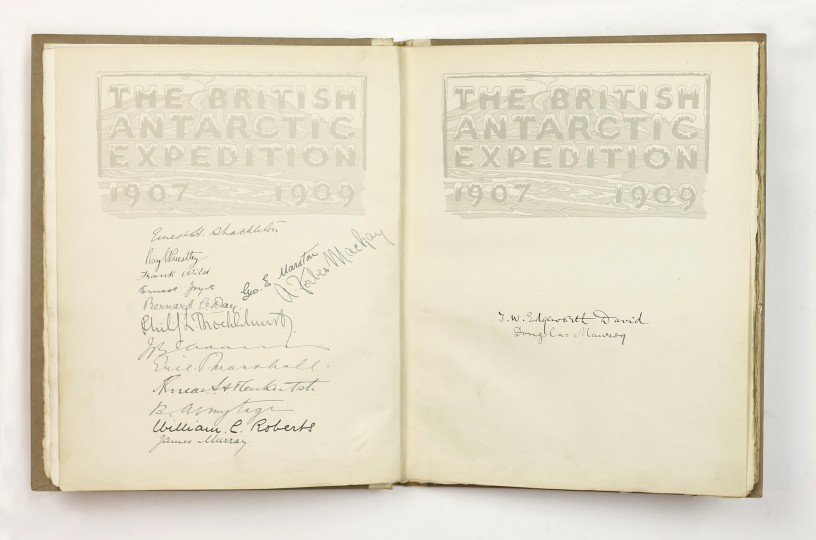 THE BRITISH
ANTARCTIC
EXPEDITION
1907 1909
Ernest H. Shackleton
Raymond Priestley
Frank Wild
Ernest Joyce
Bernard C. Day
Geo. E. Marston
A Forbes Mackay
Philip L Brocklehurst
Eric P. Marshall.
Æneas L A Mackintosh
B. Armytage
William C. Roberts
James Murray
THE BRITISH
ANTARCTIC
EXPEDITION
1907 1909
T. W. Edgeworth David
Douglas Mawson